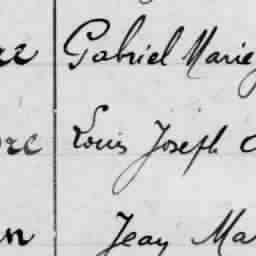 Gabriel Marie
Louis Joseph
Jean Ma